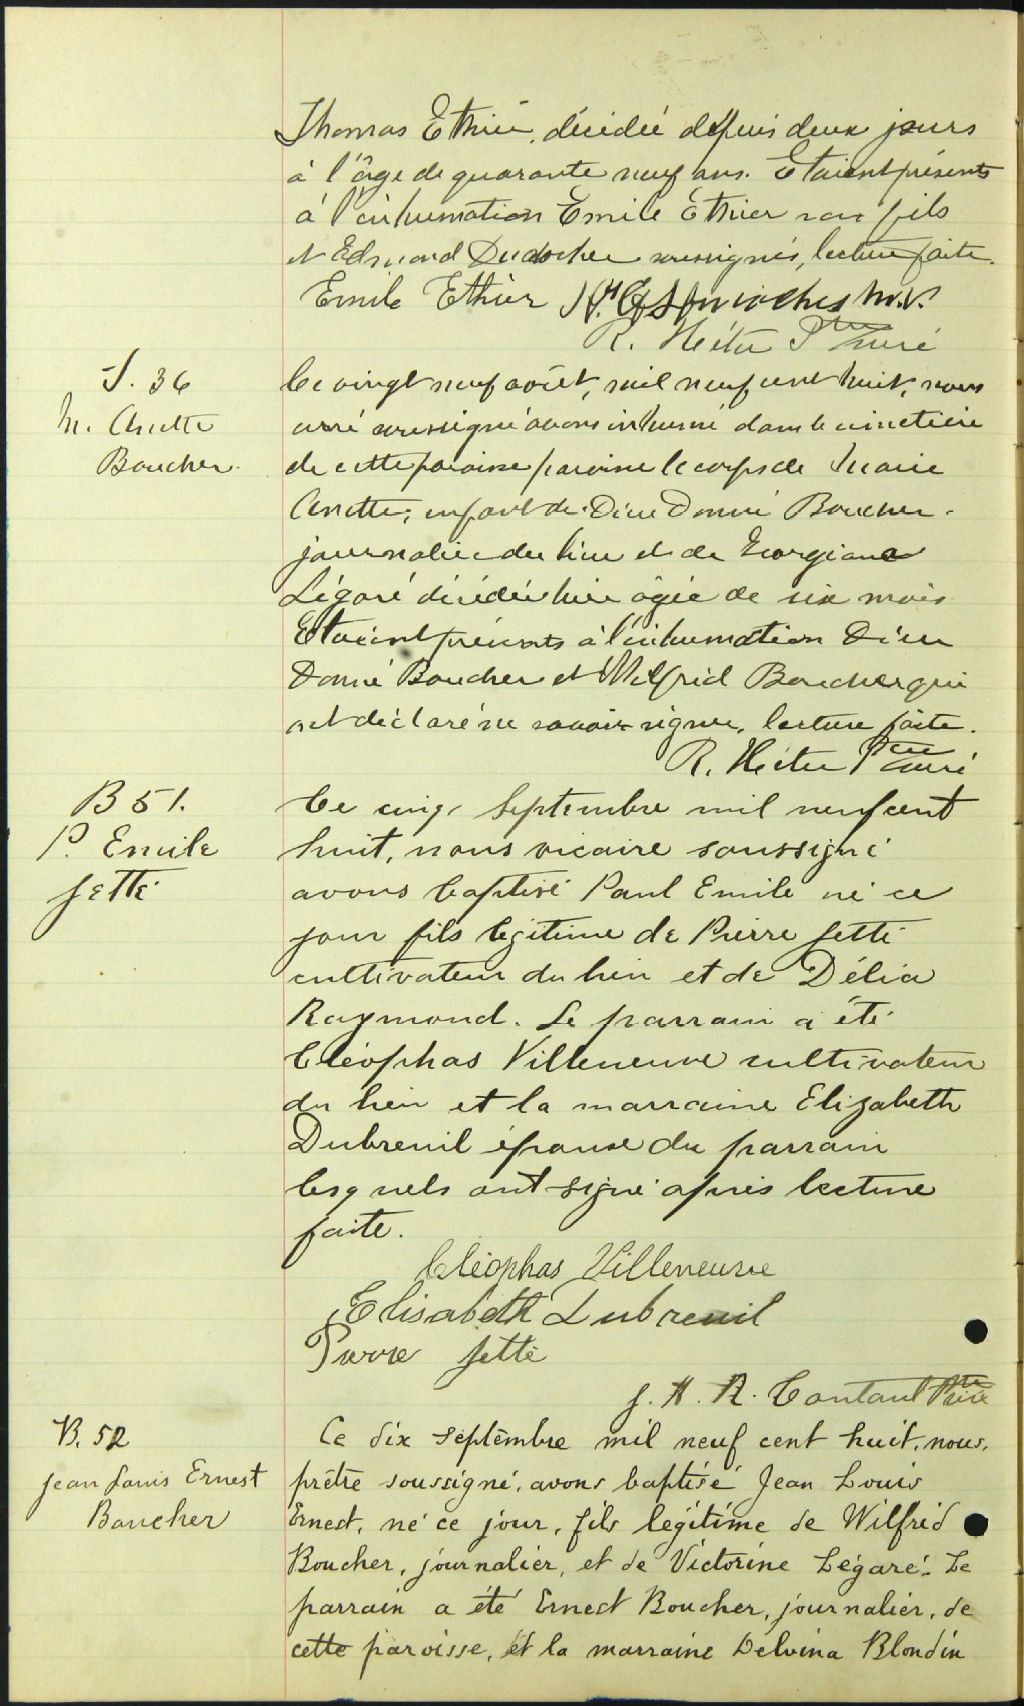 Thomas Ethier, décédée depuis deux jours
à l'âge de quarante neuf ans. Etaient présents
à l'inhumation Emile Ethier son fils
et Edmond soussignés, lecture faite.
Emile Ethier
R. Ptre curé
S. 36
M. Anette
Boucher.
Ce vingt neuf août, mil neuf cent huit, nous
curé soussigné avons inhumé dans le cimetière
de cette paroisse paroisse le corps de Marie
Anette, enfant de Dieu Donné Boucher
journalier du lieu et de Georgiana
Légaré décédée hier âgée de six mois
Etaient présents à l'inhumation Dieu
Donné Boucher et Wilfrid Boucher qui
ont déclaré ne savoir signer, lecture faite.
R. Ptre curé
B 51.
P. Emile
Jetté
Ce cinq Septembre mil neuf cent
huit, nous vicaire soussigné
avons baptisé Paul Emile né ce
jour fils légitime de Pierre Jetté
cultivateur du lieu et de Délia
Raymond. Le parrain a été
Cléophas Villeneuve cultivateur
du lieu et la marraine Elizabeth
Dubreuil épouse du parrain
lesquels ont signé après lecture
faite.
Cléophas Villeneuve
Elisabeth Dubreuil
Pierre Jetté
J. A. R. Contant Ptre
B. 52
Jean Louis Ernest
Boucher
Ce dix septembre mil neuf cent huit, nous,
prêtre soussigné, avons baptisé Jean Louis
Ernest, né ce jour, fils légitime de Wilfrid
Boucher, journalier, et de Victorine Légaré. Le
parrain a été Ernest Boucher, journalier, de
cette paroisse, et la marraine Delvina Blondin